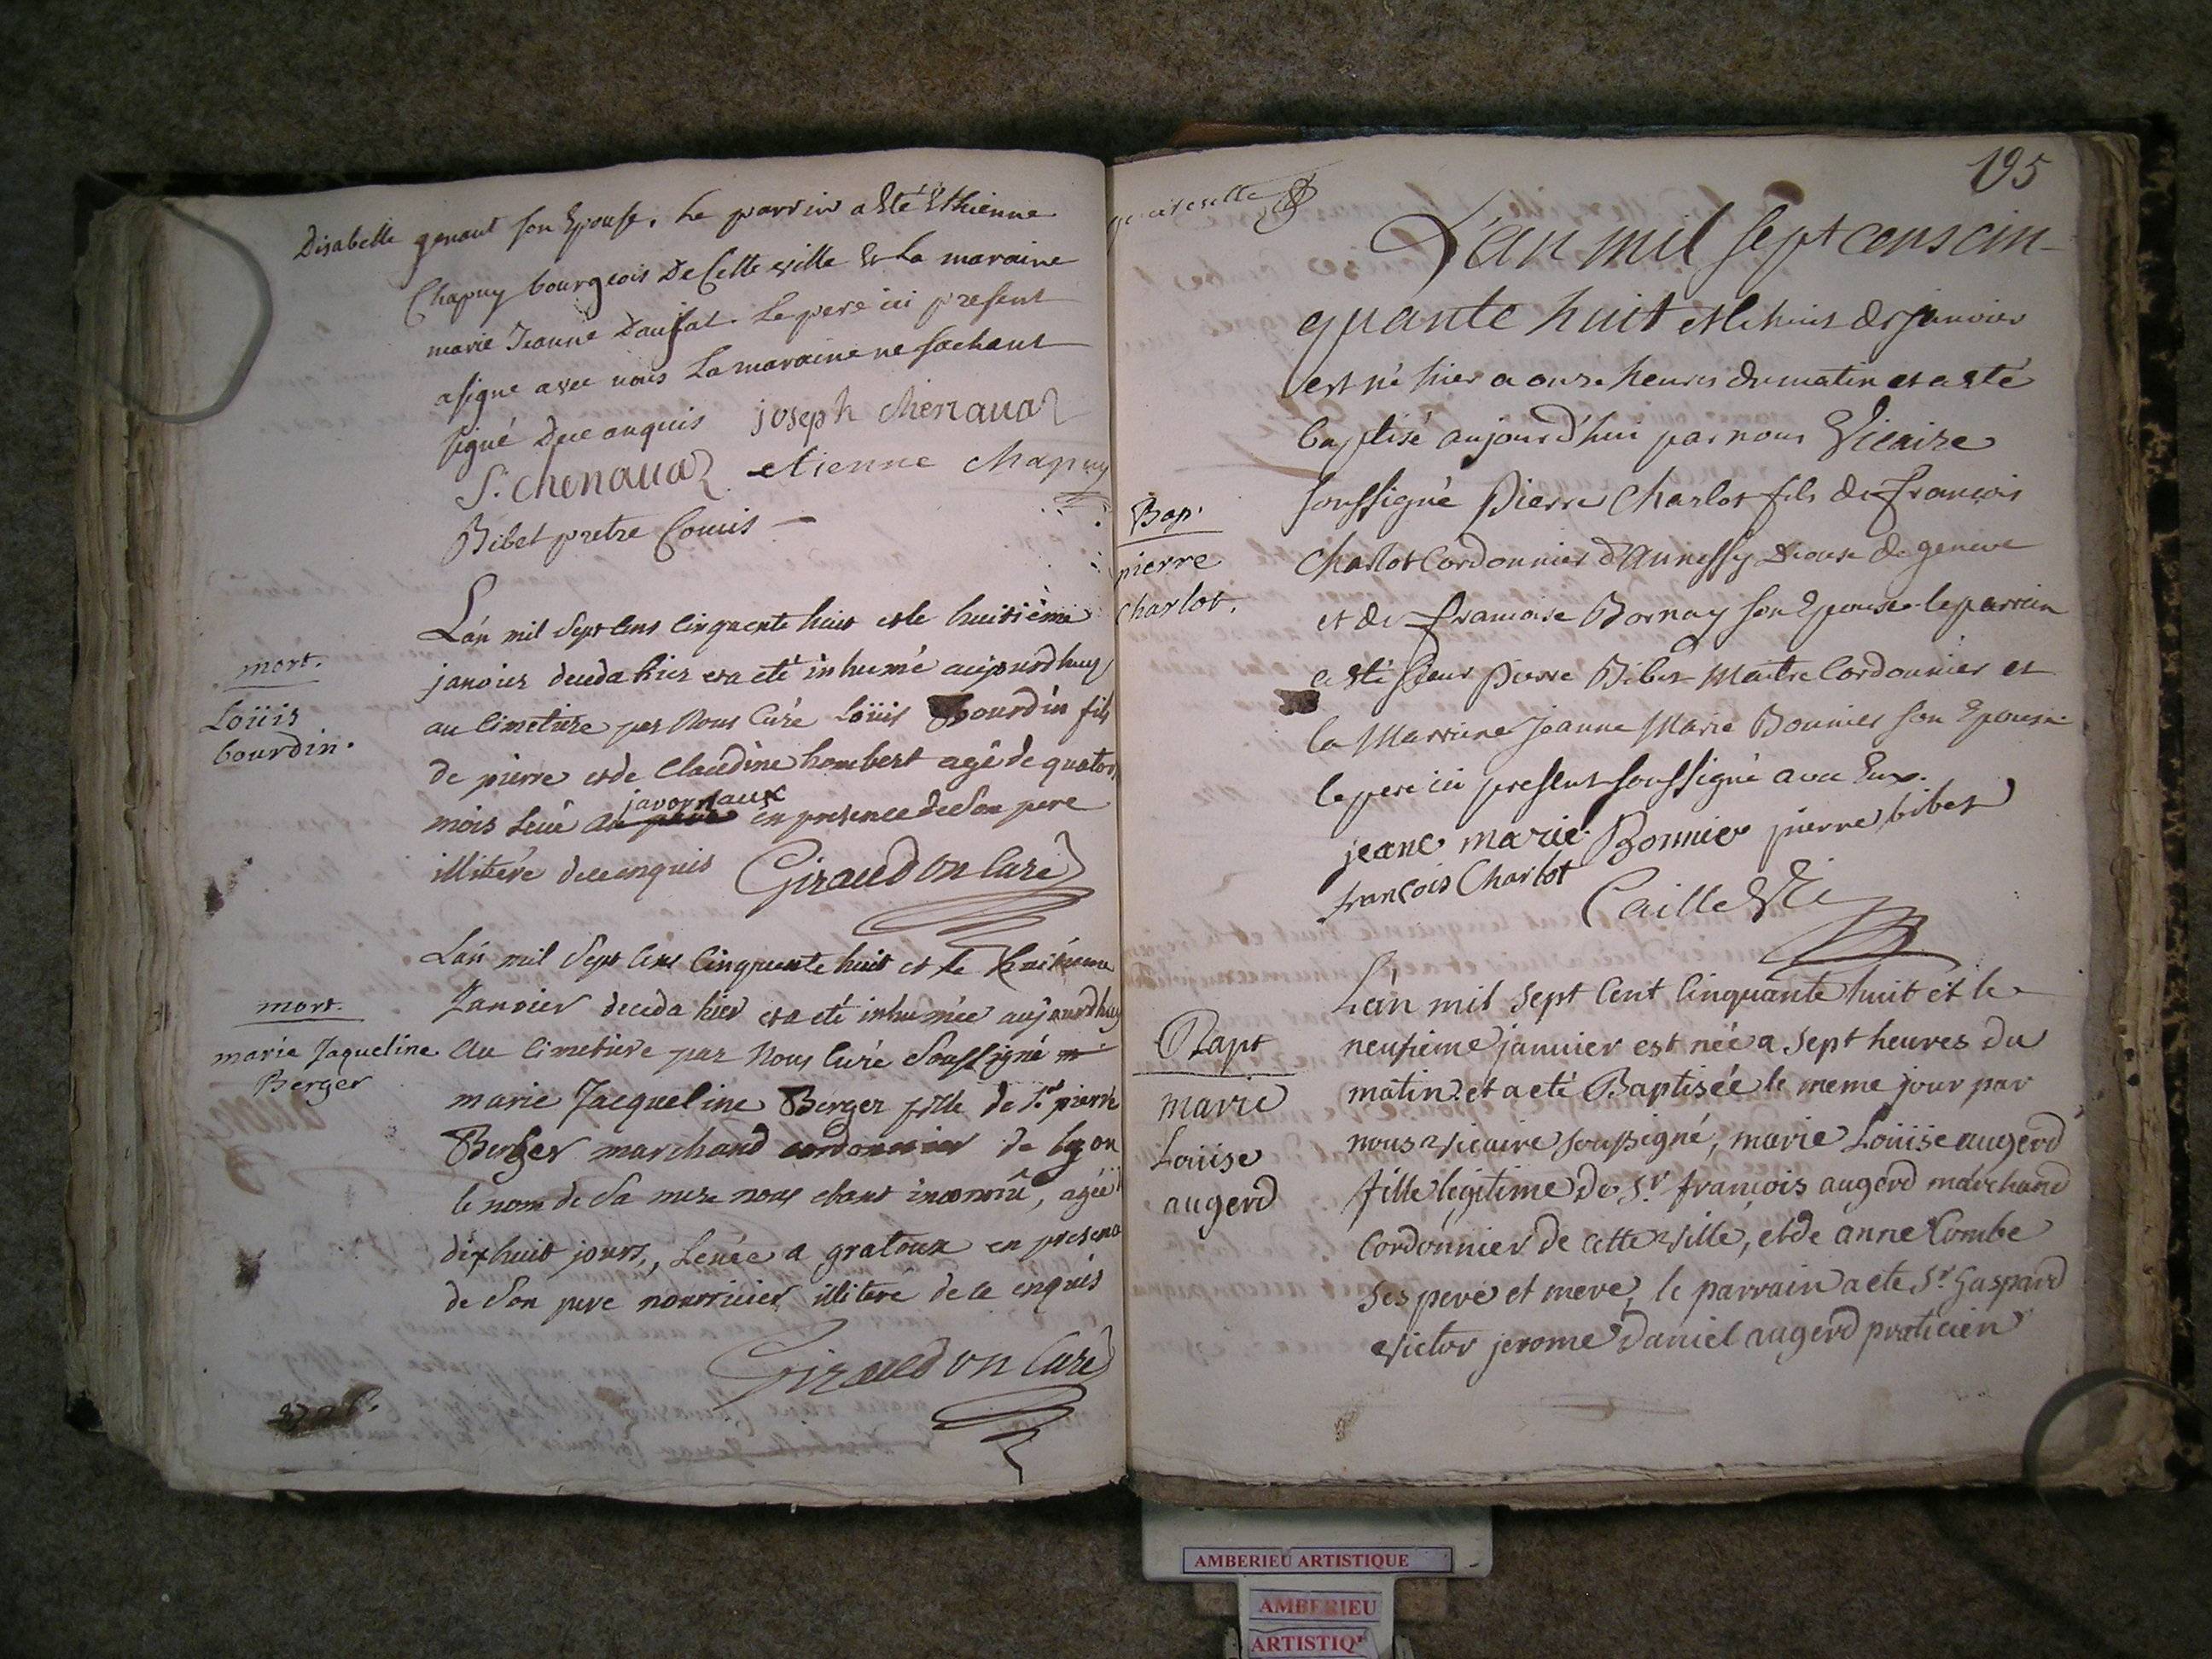 Disabelle genaut son Epouse. Le parrin a Eté Ethienne
Chapuy bourgeois De Cette ville & La maraine
marie Jeanne Le pere ici present
a signe avec nous La maraine ne sachant
signé Dece enquis joseph chenavaz
S. chenavaz etienne chapuy
Bibet pretre Comis
mort.
Loüis
bourdin.
L'an mil Sept Cens Cinquante huit et le huitième
janvier deceda hier et a eté inhumé aujourdhuy
au Cimetiere par Nous Curé Loüis Bourdin fils
de pierre et de Claudine hombert agé de quator
mois Levé au javornaux en presence de Son pere
illiteré dece enquis Giraud on Curé
mort.
marie Jaqueline
Berger
L'an mil Sept Cens Cinquante huit et le huitieme
Janvier deceda hier et a eté inhumée aujourdhuy
Au Cimetiere par Nous Curé Soussigné
marie Jacqueline Berger fille de Sr pierre
Berger marchand cordonnier de lyon
le nom de Sa mere nous etant inconnü, agée
dix huit jours, Levée a gratoux en presence
de Son pere nourricier illiteré de ce enquis
Giraud on Curé
195
L'an mil sept cens cin-
quante huit et le huit de janvier
est né hier a onze heures du matin et a esté
baptisé aujourd'hui par nous Vicaire
soussigné Pierre Charlot fils de françois
Charlot Cordonnier d'Annessy Diocese de geneve
et de francoise Bornay son Epouse le parrain
a esté sieur Pierre Bibet Maitre Cordonnier et
la Marrine Jeanne Marie Bonnier son Epouse
le pere ici present soussigné avec Eux.
jeane marie Bonnier pierre bibet
françois Charlot Caille Vic
Bap.
pierre
Charlot.
Bapt
marie
Loüise
augerd
L'an mil sept Cent Cinquante huit et le
neufieme janvier est née a sept heures du
matin et a eté Baptisée le meme jour par
nous vicaire soussigné, marie Loüise augerd
fille legitime de Sr. françois augerd marchand
Cordonnier de cette ville, et de anne Combe
ses pere et mere, le parrain a ete Sr. Gaspard
victor jerome Daniel augerd praticien
AMBERIEU ARTISTIQUE
AMBERIEU
ARTISTIQ